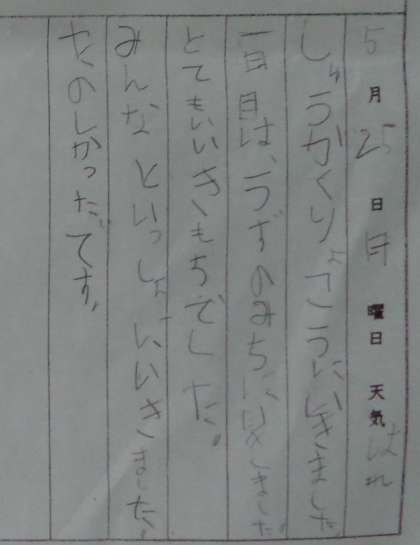 5月25日日曜日天気はれ
しゅうがくりょこうにいきました
一日目は、うずのみちにいきました
とてもいいきもちでした。
みんなといっしょにいきました。
たのしかったです。